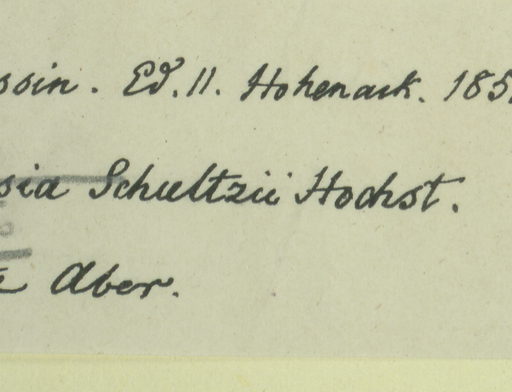 ssin. Ed. II. Hohenack. 185
sia Schultzii Hochst.
Aber.